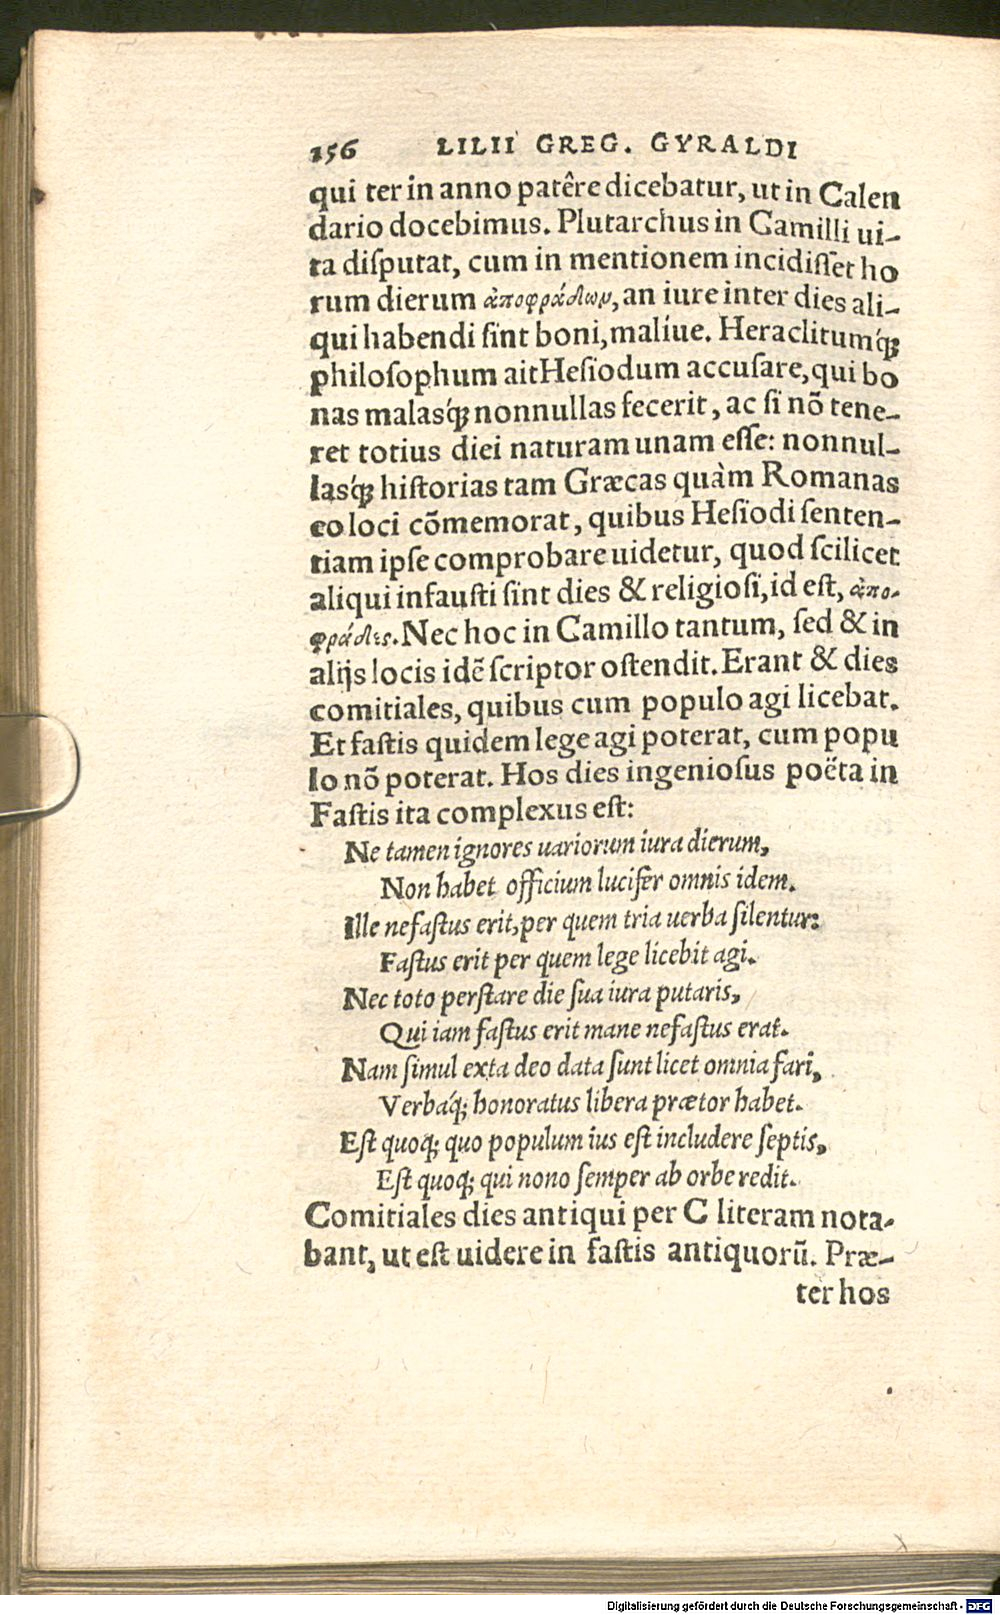 156 LILII GREG. GYRALDI
qui ter in anno patêre dicebatur, ut in Calen
dario docebimus. Plutarchus in Camilli ui-
ta diſputat, cum in mentionem incidiſſet ho
rum dierum ἀποφράδων, an iure inter dies ali-
qui habendi ſint boni, malíue. Heraclitumq́ꝫ
philoſophum ait Heſiodum accuſare, qui bo
nas malasq́ꝫ nonnullas fecerit, ac ſi nõ tene-
ret totius diei naturam unam eſſe: nonnul-
lasq́ꝫ hiſtorias tam Græcas quàm Romanas
eo loci cõmemorat, quibus Heſiodi ſenten-
tiam ipſe comprobare uidetur, quod ſcilicet
aliqui infauſti ſint dies & religioſi, id eſt, ἀπο-
φράδες. Nec hoc in Camillo tantum, ſed & in
alijs locis idẽ ſcriptor oſtendit. Erant & dies
comitiales, quibus cum populo agi licebat.
Et faſtis quidem lege agi poterat, cum popu
lo nõ poterat. Hos dies ingenioſus poëta in
Faſtis ita complexus eſt:
Ne tamen ignores uariorum iura dierum,
Non habet officium lucifer omnis idem.
Ille nefaſtus erit, per quem tria uerba ſilentur:
Faſtus erit per quem lege licebit agi.
Nec toto perſtare die ſua iura putaris,
Qui iam faſtus erit mane nefaſtus erat.
Nam ſimul exta deo data ſunt licet omnia fari,
Verbaq́ꝫ honoratus libera prætor habet.
Eſt quoqꝫ quo populum ius eſt includere ſeptis,
Eſt quoqꝫ qui nono ſemper ab orbe redit.
Comitiales dies antiqui per C literam nota-
bant, ut eſt uidere in faſtis antiquorũ. Præ-
ter hos
Digitalisierung gefördert durch die Deutsche Forschungsgemeinschaft - DFG